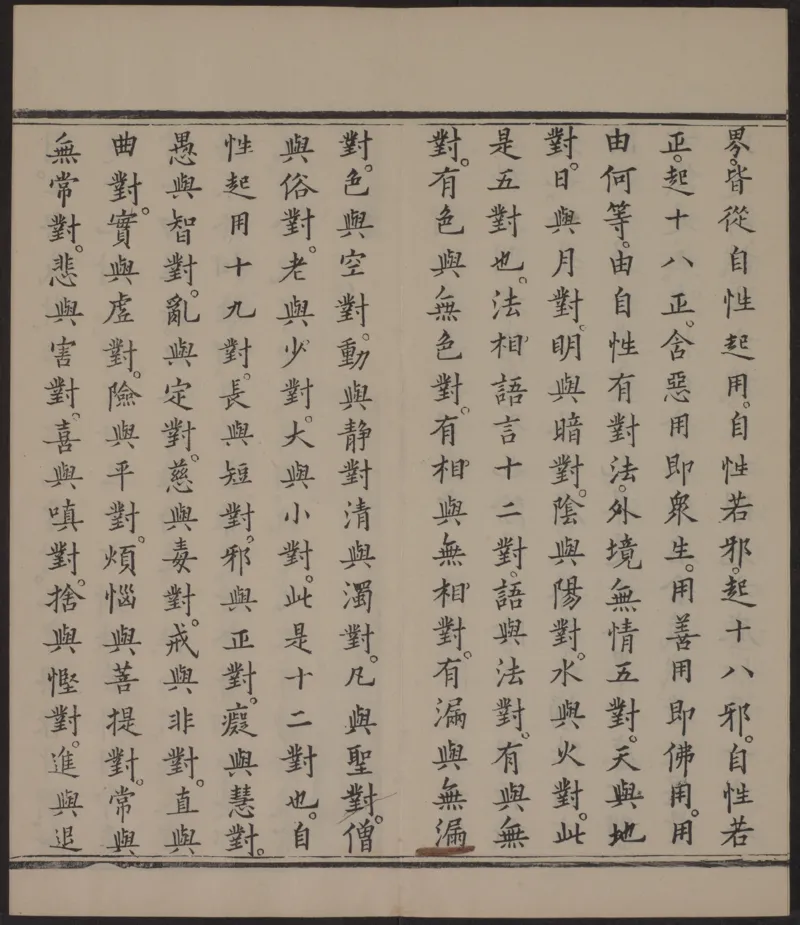 界。皆從自性起用。自性若邪。起十八邪。自性若
正。起十八正。含惡用即衆生。用善用即佛用。用
由何等。由自性有對法。外境無情五對。天與地
對。日與月對。明與暗對。陰與陽對。水與火對。此
是五對也。法相語言十二對。語與法對。有與無
對。有色與無色對。有相與無相對。有漏與無漏
對。色與空對。動與静對清與濁對。凡與聖對。僧
與俗對。老與少對。大與小對。此是十二對也。自
性起用十九對。長與短對。邪與正對。癡與慧對。
愚與智對。亂與定對。慈與毒對。戒與非對。直與
曲對。實與虛對。險與平對。煩惱與菩提對。常與
無常對。悲與害對。喜與嗔對。捨與慳對。進與退